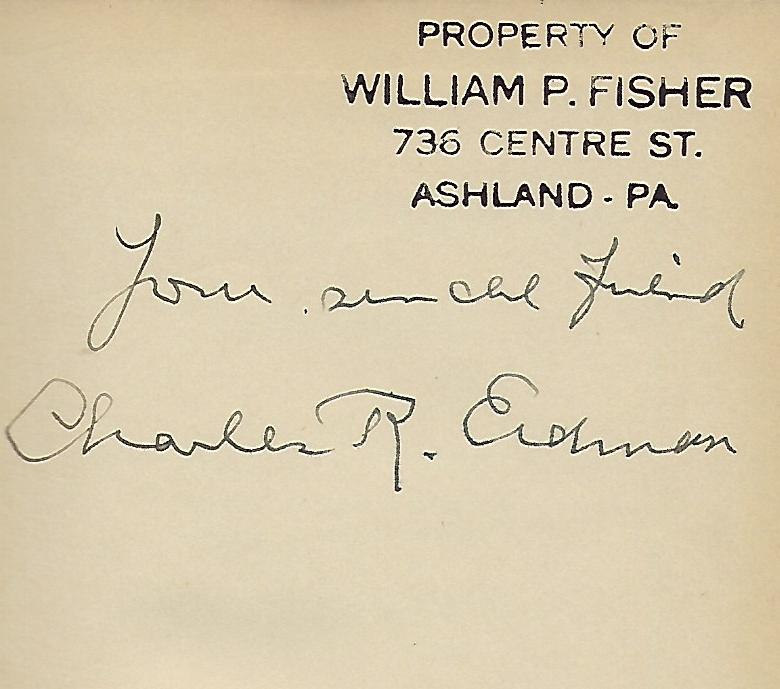 PROPERTY OF
WILLIAM P. FISHER
736 CENTRE ST.
ASHLAND - PA.
Your sincere friend
Charles R. Erdman